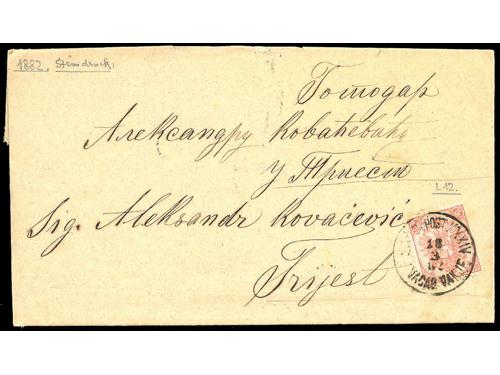 1882. Steindruck.
Господар
Александру Ковачевићу
у Триест
L12.
Sig. Aleksandr Kovačević
Trijest
18
3
VAKUF